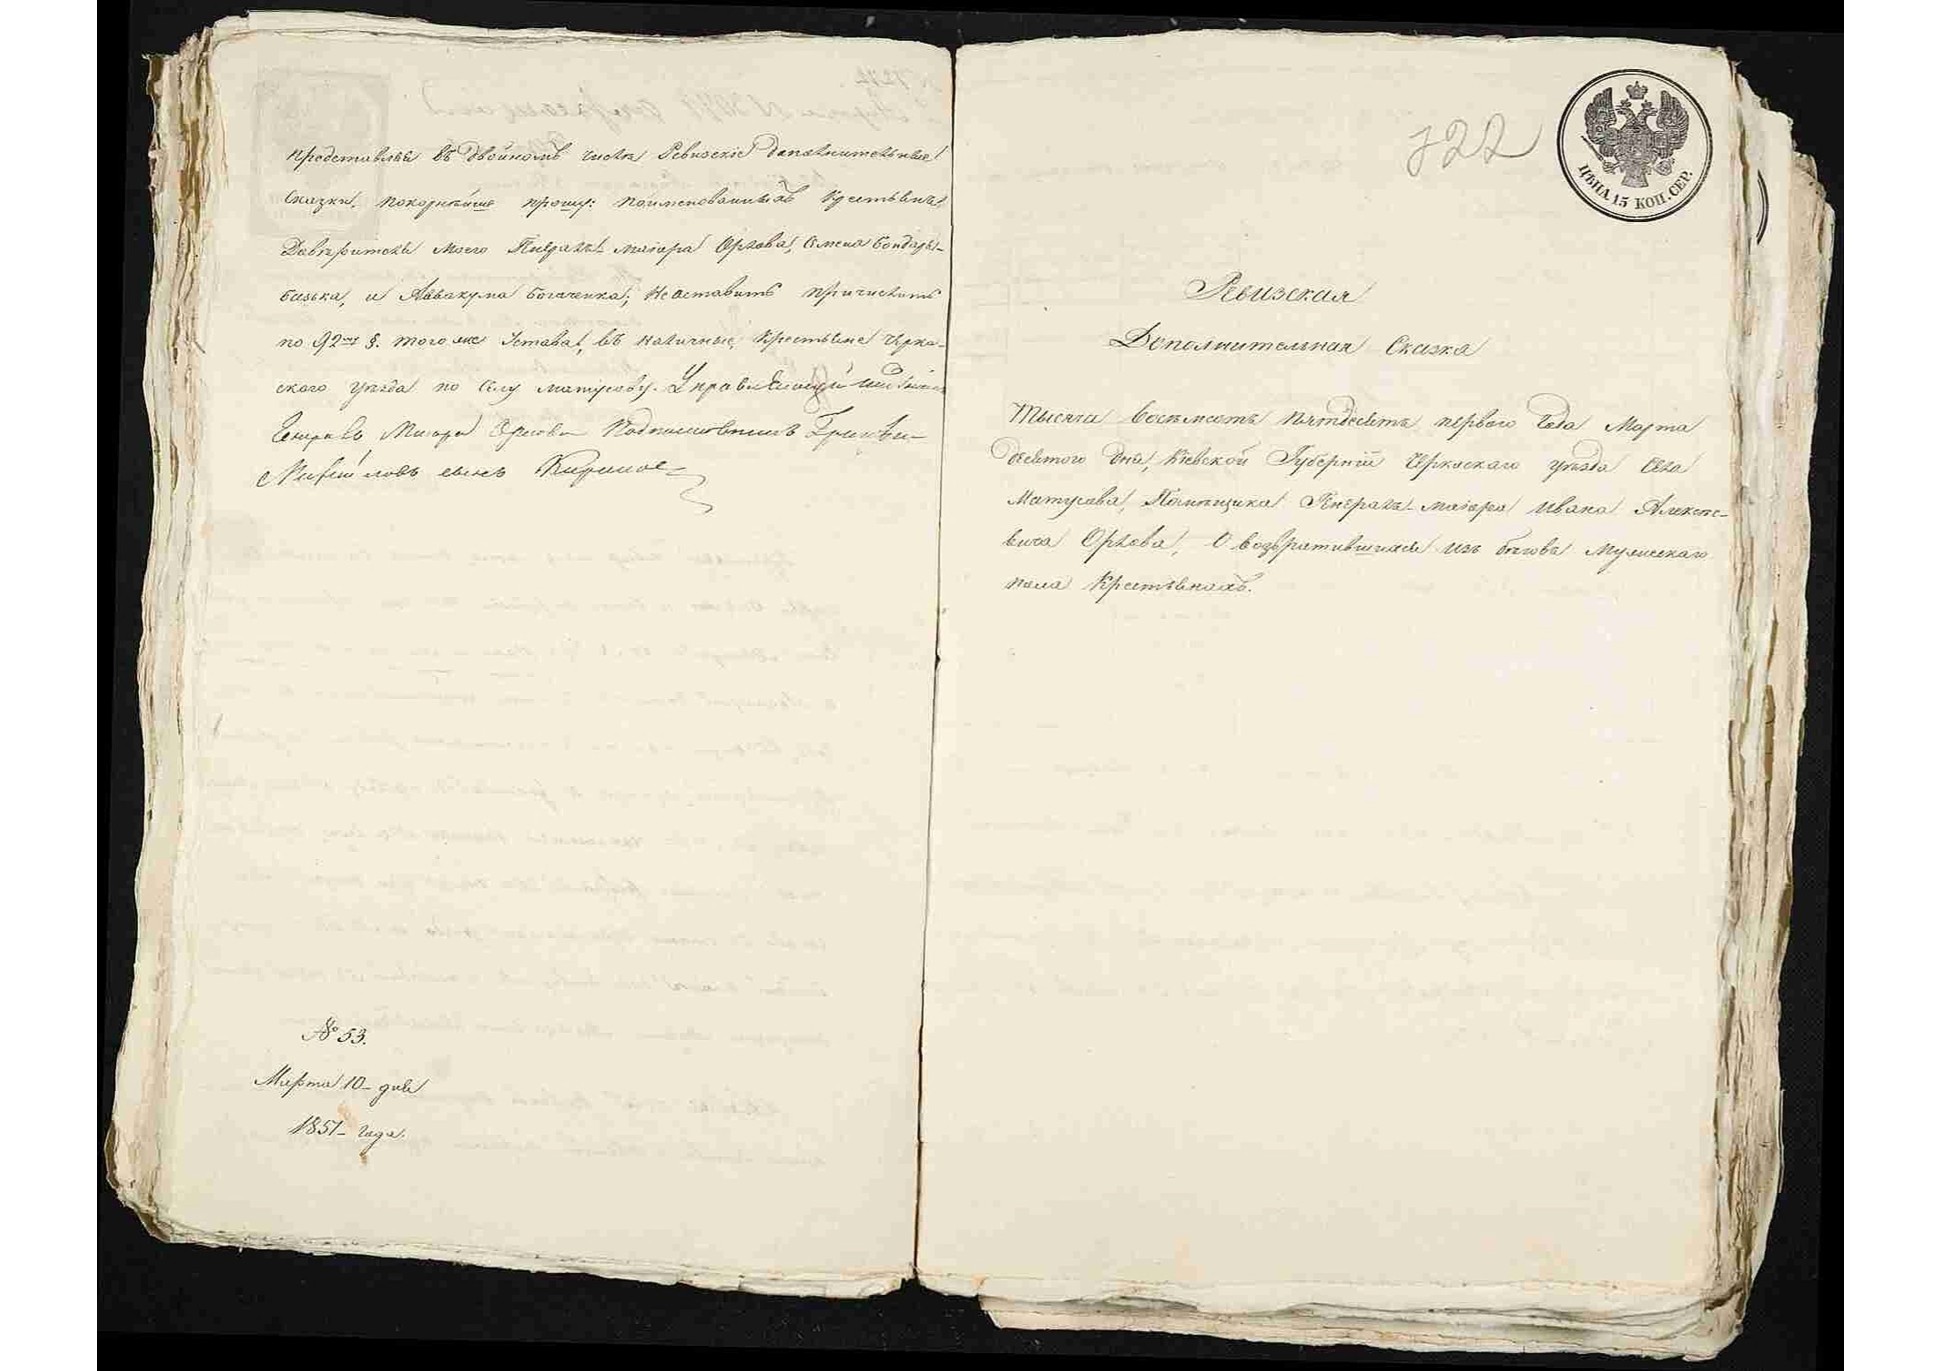 представляя въ двойномъ числѣ Ревизскіе дополнительные
сказки, покорнѣйше прошу: поименованныхъ крестьянъ
Довѣрителя моего Генералъ-маіора Орлова, Семена Бондарь-
и Аввакума Богаченка, неоставить причислить
по 92му §. того же Устава, въ наличные крестьяне Черка-
ского уѣзда по селу Матусову. Управляющій имѣніемъ
Генералъ Маіора Орлова
сынъ
№ 53.
Марта 10- дня
1851- года.
722
ЦѢНА 15 КОП. СЕР.
Ревизская
Дополнительная Сказка
Тысяча восемьсотъ пятдесятъ перваго Года Марта
десятого дня, Кіевской Губерніи Черкаскаго уѣзда Села
Матусова, Помѣщика Генералъ-маіора Ивана Алексѣе-
вича Орлова, О возвратившихся изъ бѣговъ Мужескаго
пола Крестьянахъ.